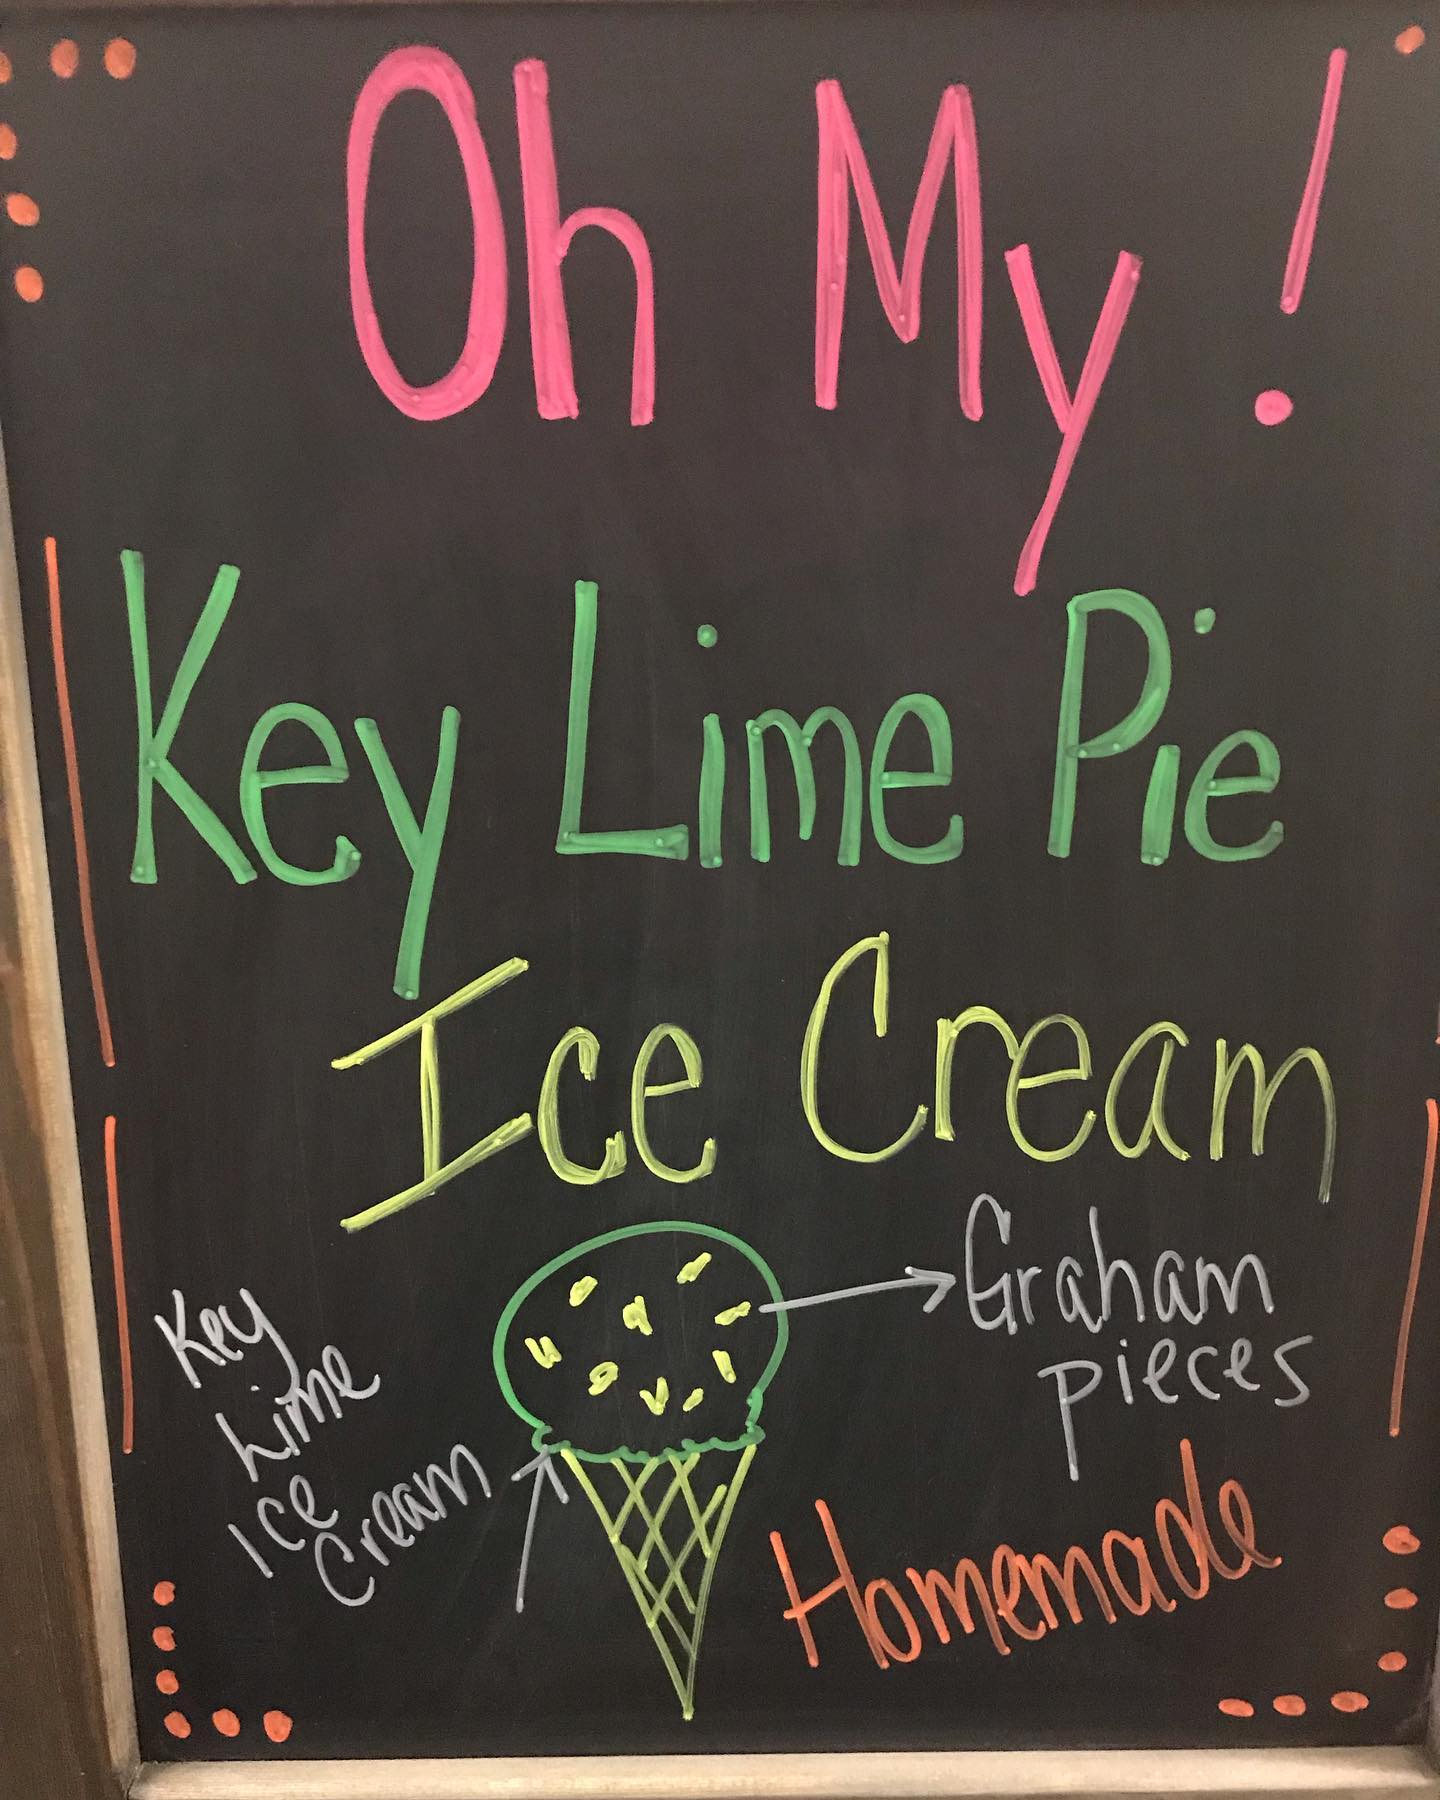 Oh My!
Key Lime Pie
Ice Cream
Graham
pieces
Key
Lime
Ice
Cream
Homemade